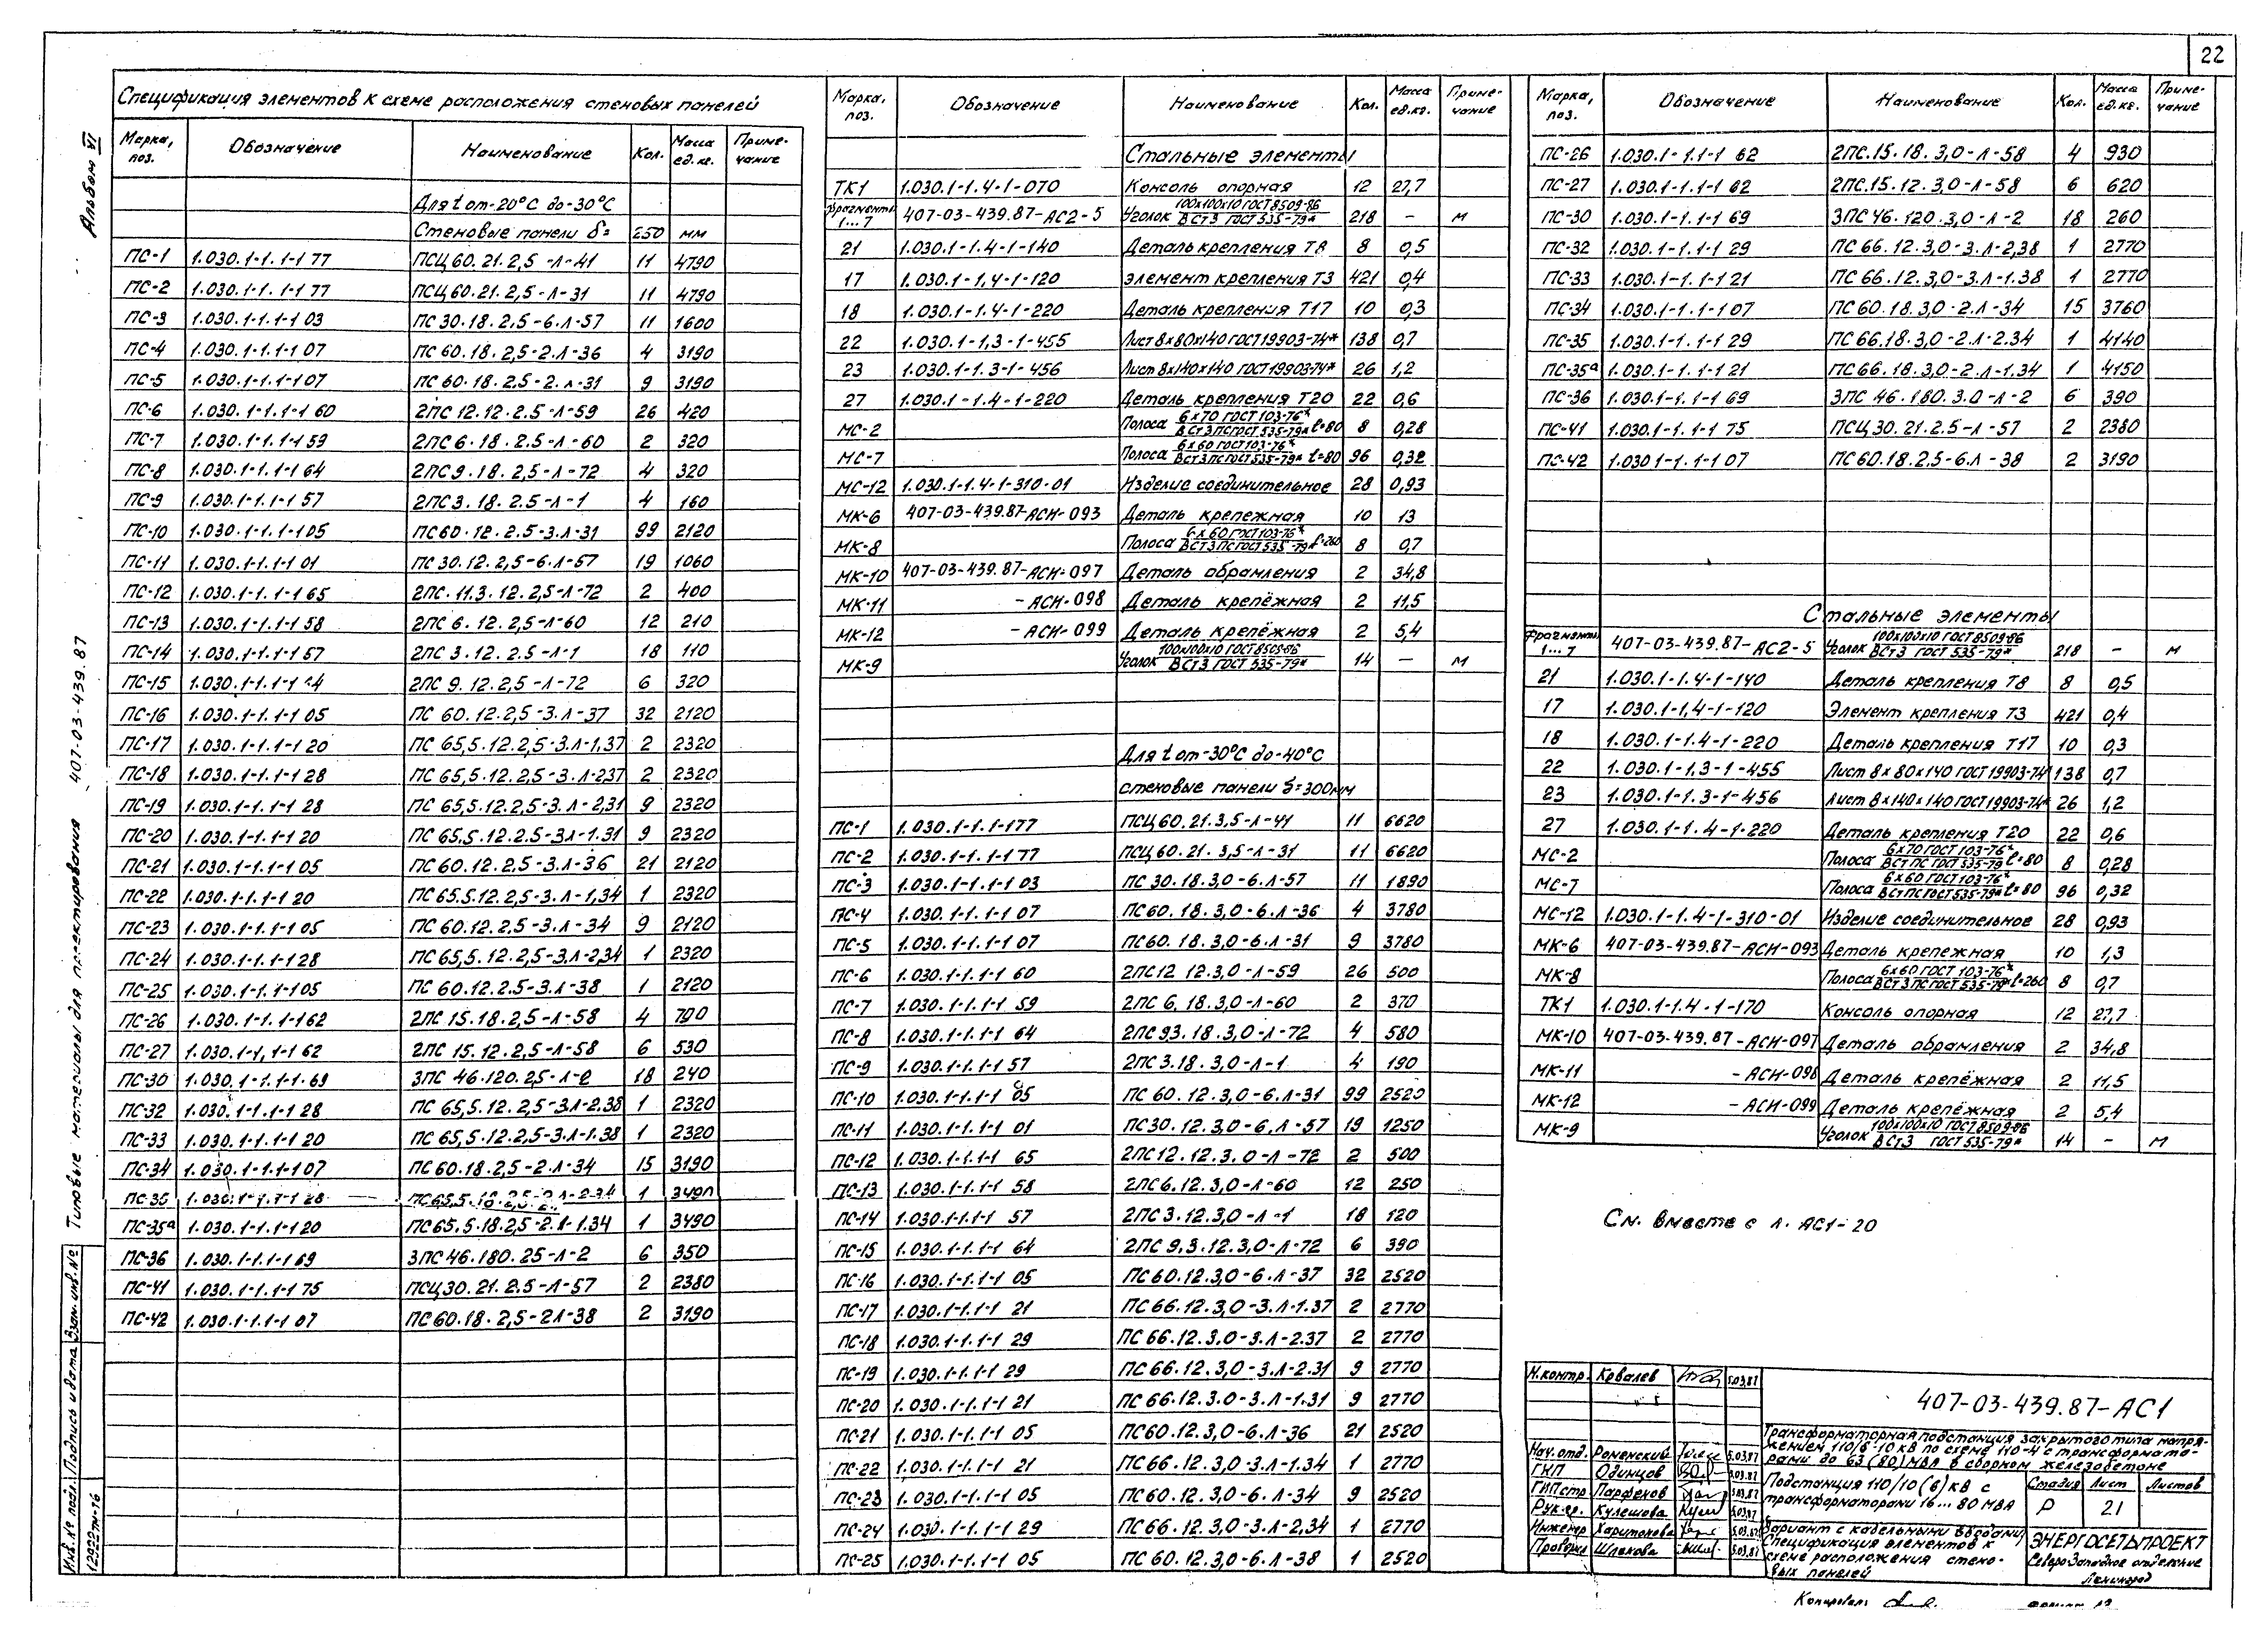 22
Альбом VI
Типовые материалы для проектирования 407-03-439.87
Спецификация элементов к схеме расположения стеновых панелей
Марка, поз. Обозначение Наименование Кол. Масса ед.кг. Приме-чание
Для t от -20°C до -30°C
Стеновые панели δ= 250 мм
ПС-1 1.030.1-1.1-1 77 ПСЦ 60.21.2,5-л-41 11 4790
ПС-2 1.030.1-1.1-1 77 ПСЦ 60.21.2,5-л-31 11 4790
ПС-3 1.030.1-1.1-1 03 ПС 30.18.2,5-6.л-57 11 1600
ПС-4 1.030.1-1.1-1 07 ПС 60.18.2,5-2.л-36 4 3190
ПС-5 1.030.1-1.1-1 07 ПС 60.18.2.5-2.л-31 9 3190
ПС-6 1.030.1-1.1-1 60 2ПС 12.12.2.5-л-59 26 420
ПС-7 1.030.1-1.1-1 59 2ПС 6.18.2.5-л-60 2 320
ПС-8 1.030.1-1.1-1 64 2ПС 9.18.2,5-л-72 4 320
ПС-9 1.030.1-1.1-1 57 2ПС 3.18.2.5-л-1 4 160
ПС-10 1.030.1-1.1-1 05 ПС 60.12.2.5-3.л-31 99 2120
ПС-11 1.030.1-1.1-1 01 ПС 30.12.2,5-6.л-57 19 1060
ПС-12 1.030.1-1.1-1 65 2ПС.11.3.12.2,5-л-72 2 400
ПС-13 1.030.1-1.1-1 58 2ПС 6.12.2,5-л-60 12 210
ПС-14 1.030.1-1.1-1 57 2ПС 3.12.2.5-л-1 18 110
ПС-15 1.030.1-1.1-1 2ПС 9.12.2,5-л-72 6 320
ПС-16 1.030.1-1.1-1 05 ПС 60.12.2,5-3.л-37 32 2120
ПС-17 1.030.1-1.1-1 20 ПС 65,5.12.2,5-3.л-1,37 2 2320
ПС-18 1.030.1-1.1-1 28 ПС 65,5.12.2,5-3.л-237 2 2320
ПС-19 1.030.1-1.1-1 28 ПС 65,5.12.2,5-3.л-2,31 9 2320
ПС-20 1.030.1-1.1-1 20 ПС 65,5.12.2.5-3л-1.31 9 2320
ПС-21 1.030.1-1.1-1 05 ПС 60.12.2.5-3.л-36 21 2120
ПС-22 1.030.1-1.1-1 20 ПС 65.5.12.2,5-3.л-1,34 1 2320
ПС-23 1.030.1-1.1-1 05 ПС 60.12.2,5-3.л-34 9 2120
ПС-24 1.030.1-1.1-1 28 ПС 65,5.12.2,5-3.л-2,34 1 2320
ПС-25 1.030.1-1.1-1 05 ПС 60.12.2.5-3.л-38 1 2120
ПС-26 1.030.1-1.1-1 62 2ПС 15.18.2,5-л-58 4 790
ПС-27 1.030.1-1,1-1 62 2ПС 15.12.2,5-л-58 6 530
ПС-30 1.030.1-1.1-1.69 3ПС 46.120.2,5-л-2 18 240
ПС-32 1.030.1-1.1-1 28 ПС 65,5.12.2,5-3.л-2.38 1 2320
ПС-33 1.030.1-1.1-1 20 ПС 65,5.12.2,5-3.л-1.38 1 2320
ПС-34 1.030.1-1.1-1 07 ПС 60.18.2,5-2.л-34 15 3190
ПС-35 1.030.1-1.1-1 28 1 3490
ПС-35а 1.030.1-1.1-1 20 ПС 65.5.18.2,5-2.л-1.34 1 3490
ПС-36 1.030.1-1.1-1 69 3ПС 46.180.25-л-2 6 350
ПС-41 1.030.1-1.1-1 75 ПСЦ 30.21.2.5-л-57 2 2380
ПС-42 1.030.1-1.1-1 07 ПС 60.18.2,5-2л-38 2 3190
Марка, поз. Обозначение Наименование Кол. Масса ед.кг. Приме-чание
Стальные элементы
ТК1 1.030.1-1.4-1-070 Консоль опорная 12 27,7
Фрагменты 1...7 407-03-439.87-АС2-5 Уголок 100х100х10 ГОСТ 8509-86 / ВСт3 ГОСТ 535-79* 218 – м
21 1.030.1-1.4-1-140 Деталь крепления Т8 8 0,5
17 1.030.1-1,4-1-120 элемент крепления Т3 421 0,4
18 1.030.1-1.4-1-220 Деталь крепления Т17 10 0,3
22 1.030.1-1,3-1-455 Лист 8х80х140 ГОСТ 19903-74* 138 0,7
23 1.030.1-1.3-1-456 Лист 8х140х140 ГОСТ 19903-74* 26 1,2
27 1.030.1-1.4-1-220 Деталь крепления Т20 22 0,6
МС-2 Полоса 6х70 ГОСТ 103-76* / ВСт3ПС ГОСТ 535-79* ℓ=80 8 0,28
МС-7 Полоса 6х60 ГОСТ 103-76* / ВСт3ПС ГОСТ 535-79* ℓ=80 96 0,32
МС-12 1.030.1-1.4-1-310-01 Изделие соединительное 28 0,93
МК-6 407-03-439.87-АСИ-093 Деталь крепежная 10 13
МК-8 Полоса 6х60 ГОСТ 103-76* / ВСт3ПС ГОСТ 535-79* ℓ=260 8 0,7
МК-10 407-03-439.87-АСИ-097 Деталь обрамления 2 34,8
МК-11 -АСИ-098 Деталь крепёжная 2 11,5
МК-12 -АСИ-099 Деталь крепёжная 2 5,4
МК-9 Уголок 100х100х10 ГОСТ 8509-86 / ВСт3 ГОСТ 535-79* 14 – м
Для t от -30°C до -40°C
стеновые панели δ=300мм
ПС-1 1.030.1-1.1-177 ПСЦ 60.21.3,5-л-41 11 6620
ПС-2 1.030.1-1.1-1 77 ПСЦ 60.21.3,5-л-31 11 6620
ПС-3 1.030.1-1.1-1 03 ПС 30.18.3,0-6.л-57 11 1890
ПС-4 1.030.1-1.1-1 07 ПС 60.18.3,0-6.л-36 4 3780
ПС-5 1.030.1-1.1-1 07 ПС 60.18.3,0-6.л-31 9 3780
ПС-6 1.030.1-1.1-1 60 2ПС 12 12.3,0-л-59 26 500
ПС-7 1.030.1-1.1-1 59 2ПС 6.18.3,0-л-60 2 370
ПС-8 1.030.1-1.1-1 64 2ПС 93.18.3,0-л-72 4 580
ПС-9 1.030.1-1.1-1 57 2ПС 3.18.3,0-л-1 4 190
ПС-10 1.030.1-1.1-1 05 ПС 60.12.3,0-6.л-31 99 2520
ПС-11 1.030.1-1.1-1 01 ПС 30.12.3,0-6.л-57 19 1250
ПС-12 1.030.1-1.1-1 65 2ПС 12.12.3.0-л-72 2 500
ПС-13 1.030.1-1.1-1 58 2ПС 6.12.3,0-л-60 12 250
ПС-14 1.030.1-1.1-1 57 2ПС 3.12.3,0-л-1 18 120
ПС-15 1.030.1-1.1-1 64 2ПС 9,3.12.3,0-л-72 6 390
ПС-16 1.030.1-1.1-1 05 ПС 60.12.3,0-6.л-37 32 2520
ПС-17 1.030.1-1.1-1 21 ПС 66.12.3,0-3.л-1.37 2 2770
ПС-18 1.030.1-1.1-1 29 ПС 66.12.3,0-3.л-2.37 2 2770
ПС-19 1.030.1-1.1-1 29 ПС 66.12.3,0-3.л-2.31 9 2770
ПС-20 1.030.1-1.1-1 21 ПС 66.12.3.0-3.л-1.31 9 2770
ПС-21 1.030.1-1.1-1 05 ПС 60.12.3,0-6.л-36 21 2520
ПС-22 1.030.1-1.1-1 21 ПС 66.12.3,0-3.л-1.34 1 2770
ПС-23 1.030.1-1.1-1 05 ПС 60.12.3,0-6.л-34 9 2520
ПС-24 1.030.1-1.1-1 29 ПС 66.12.3,0-3.л-2,34 1 2770
ПС-25 1.030.1-1.1-1 05 ПС 60.12.3,0-6.л-38 1 2520
Марка, поз. Обозначение Наименование Кол. Масса ед.кг. Приме-чание
ПС-26 1.030.1-1.1-1 62 2ПС.15.18.3,0-л-58 4 930
ПС-27 1.030.1-1.1-1 62 2ПС.15.12.3,0-л-58 6 620
ПС-30 1.030.1-1.1-1 69 3ПС 46.120.3,0-л-2 18 260
ПС-32 1.030.1-1.1-1 29 ПС 66.12.3,0-3.л-2,38 1 2770
ПС-33 1.030.1-1.1-1 21 ПС 66.12.3,0-3.л-1.38 1 2770
ПС-34 1.030.1-1.1-1 07 ПС 60.18.3,0-2.л-34 15 3760
ПС-35 1.030.1-1.1-1 29 ПС 66.18.3,0-2.л-2.34 1 4140
ПС-35а 1.030.1-1.1-1 21 ПС 66.18.3,0-2.л-1.34 1 4150
ПС-36 1.030.1-1.1-1 69 3ПС 46.180.3.0-л-2 6 390
ПС-41 1.030.1-1.1-1 75 ПСЦ 30.21.2.5-л-57 2 2380
ПС-42 1.030 1-1.1-1 07 ПС 60.18.2,5-6.л-38 2 3190
Стальные элементы
Фрагменты 1...7 407-03-439.87-АС2-5 Уголок 100х100х10 ГОСТ 8509-86 / ВСт3 ГОСТ 535-79* 218 – м
21 1.030.1-1.4-1-140 Деталь крепления Т8 8 0,5
17 1.030.1-1,4-1-120 Элемент крепления Т3 421 0,4
18 1.030.1-1.4-1-220 Деталь крепления Т17 10 0,3
22 1.030.1-1.3-1-455 Лист 8х80х140 ГОСТ 19903-74 138 0,7
23 1.030.1-1.3-1-456 Лист 8х140х140 ГОСТ 19903-74* 26 1,2
27 1.030.1-1.4-1-220 Деталь крепления Т20 22 0,6
МС-2 Полоса 6х70 ГОСТ 103-76* / ВСт ПС ГОСТ 535-79 ℓ=80 8 0,28
МС-7 Полоса 6х60 ГОСТ 103-76* / ВСт ПС ГОСТ 535-79* ℓ=80 96 0,32
МС-12 1.030.1-1.4-1-310-01 Изделие соединительное 28 0,93
МК-6 407-03-439.87-АСИ-093 Деталь крепежная 10 1,3
МК-8 Полоса 6х60 ГОСТ 103-76* / ВСт3ПС ГОСТ 535-79* ℓ=260 8 0,7
ТК1 1.030.1-1.4-1-170 Консоль опорная 12 27,7
МК-10 407-03-439.87-АСИ-097 Деталь обрамления 2 34,8
МК-11 -АСИ-098 Деталь крепёжная 2 11,5
МК-12 -АСИ-099 Деталь крепёжная 2 5,4
МК-9 Уголок 100х100х10 ГОСТ 8509-86 / ВСт3 ГОСТ 535-79* 14 – м
См. вместе с л. АС1-20
Н.контр. Ковалев 5.03.87
Нач.отд. Роменский 5.03.87
ГИП Одинцов 5.03.87
ГИПстр Парфенов 5.03.87
Рук.гр. Кулешова 5.03.87
Инженер Харитонова 5.03.87
Проверил Шлякова 5.03.87
407-03-439.87-АС1
Трансформаторная подстанция закрытого типа напря-
жением 110/6-10 кв по схеме 110-4 с трансформато-
рами до 63(80) МВА в сборном железобетоне
Подстанция 110/10(6) кв с
трансформаторами 16...80 МВА
Стадия Лист Листов
Р 21
Вариант с кабельными вводами
Спецификация элементов к
схеме расположения стено-
вых панелей
ЭНЕРГОСЕТЬПРОЕКТ
Северо-Западное отделение
Ленинград
Копировал:
Инв.№ подл. Подпись и дата Взам.инв.№
12922тм-т6